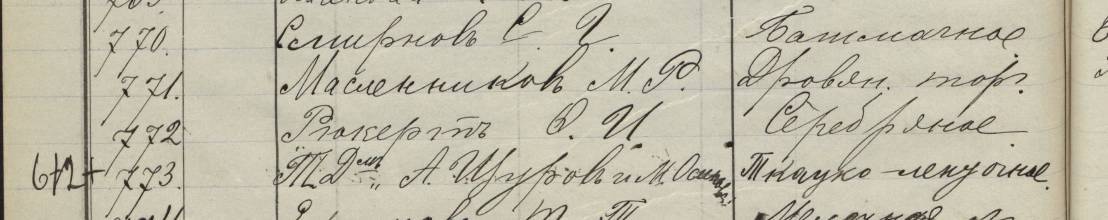 770. Смирновъ С. I. Башмачное
771. Масленниковъ М. Р. Дровян. торг.
772 Рюкертъ О. И Серебряное
612+ 773. Т. Д. „ А. Щуровъ и М. Ткацко-ленточное.